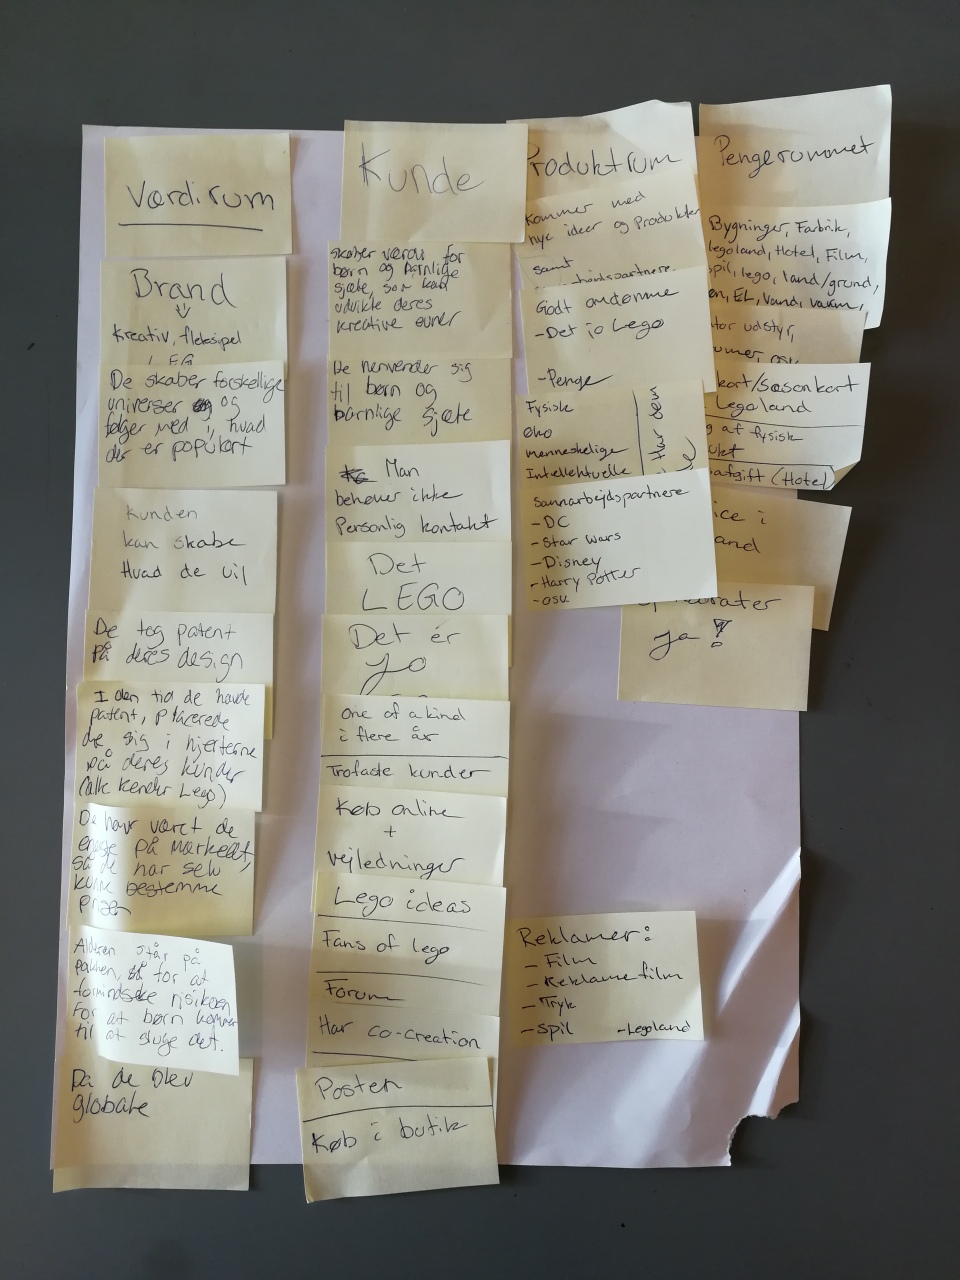 Værdirum
Brand
Kreativ, fleksipel
LEG
De skaber forskellige
universer og
følger med i, hvad
der er populært
Kunden
kan skabe
Hvad de vil
De tog patent
på deres design
I den tid de havde
patent, placerede
de sig i hjerterne
på deres kunder
(alle kender Lego)
De har været de
eneste på markedet,
så de har selv
kunne bestemme
prisen
Alderen står på
pakken, så for at
formindske risikoen
For at børn kommer
til at sluge det.
Da de blev
globale
Kunde
skaber værdi for
børn og barnlige
sjæle, som kan
udvikle deres
kreative evner
De henvender sig
til børn og
barnlige sjæle
Man
behøver ikke
Personlig kontakt
Det
LEGO
Det er
jo
One of a kind
i flere år
Trofaste kunder
Køb online
+
vejledninger
Lego ideas
Fans of lego
Forum
Har co-creation
Posten
Køb i butik
Produktrum
Kommer med
nye ideer og Produkter
samt
Godt omdømme
-Det jo Lego
-Penge
Fysisk
Øko
menneskelige
Intellektuelle
Har dem
Samarbejdspartnere
-DC
-Star Wars
-Disney
-Harry Potter
-osv
Reklamer:
- Film
- Reklamefilm
- Tryk
- Spil -Legoland
Pengerummet
Bygninger, Fabrik,
legoland, Hotel, Film,
spil, lego, land/grund,
EL, Vand, varm,
udstyr,
osv
kort/Sæsonkort
Legoland
af fysisk
afgift (Hotel)
i
ja!